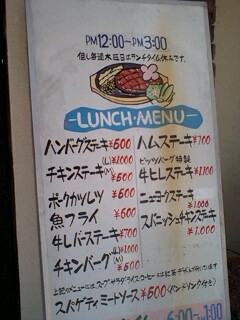 PM12:00~PM3:00
但し毎週木曜日はランチタイム休みです。
LUNCH・MENU
ハンバーグステーキ ¥600
(L)¥1000
チキンステーキ(M) ¥600
ポークカツレツ ¥600
魚フライ ¥600
牛レバーステーキ ¥700
(L)¥1000
チキンバーグ(M) ¥600
ハムステーキ ¥700
ピッツバーグ特製
牛ヒレステーキ ¥1100
ニューヨークステーキ
¥1.000
スパニッシュチキンステーキ
¥1.000
上記のメニューには、スープ サラダ ライス コーヒー又は紅茶
スパゲティミートソース ¥600